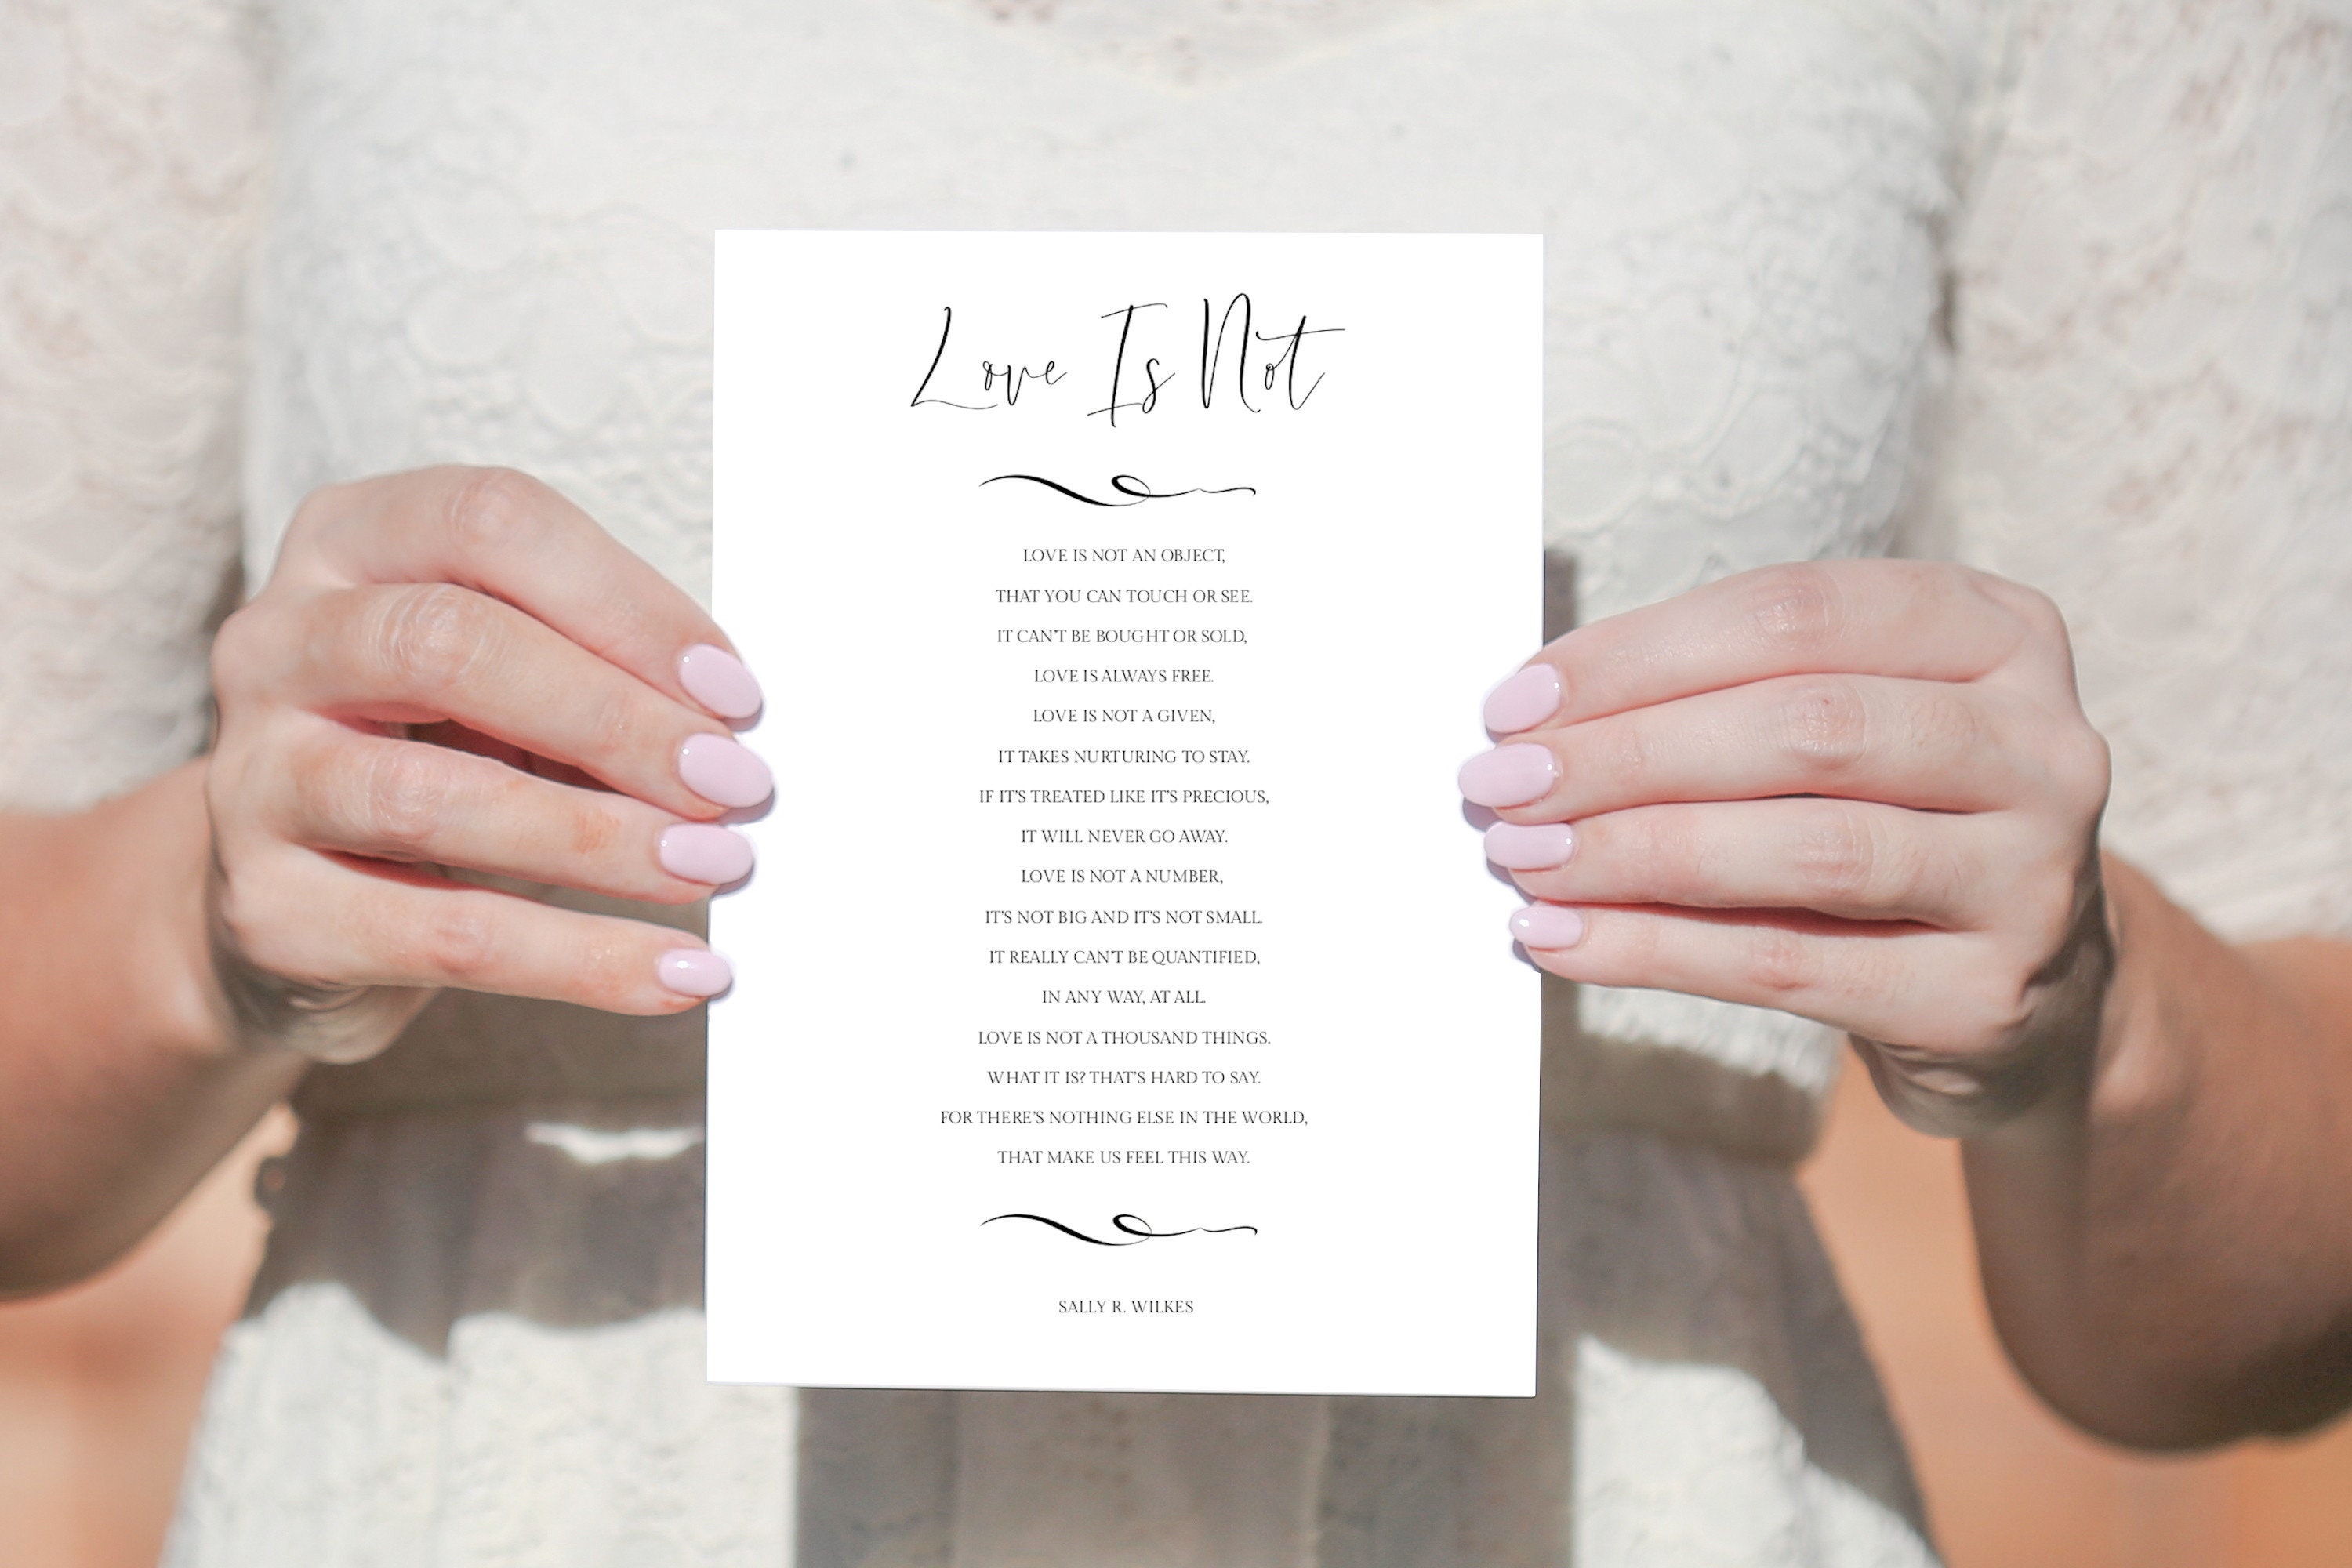 Love Is Not
LOVE IS NOT AN OBJECT,
THAT YOU CAN TOUCH OR SEE.
IT CAN'T BE BOUGHT OR SOLD,
LOVE IS ALWAYS FREE.
LOVE IS NOT A GIVEN,
IT TAKES NURTURING TO STAY.
IF IT'S TREATED LIKE IT'S PRECIOUS,
IT WILL NEVER GO AWAY.
LOVE IS NOT A NUMBER,
IT'S NOT BIG AND IT'S NOT SMALL.
IT REALLY CAN'T BE QUANTIFIED,
IN ANY WAY, AT ALL.
LOVE IS NOT A THOUSAND THINGS.
WHAT IT IS? THAT'S HARD TO SAY.
FOR THERE'S NOTHING ELSE IN THE WORLD,
THAT MAKE US FEEL THIS WAY.
SALLY R. WILKES